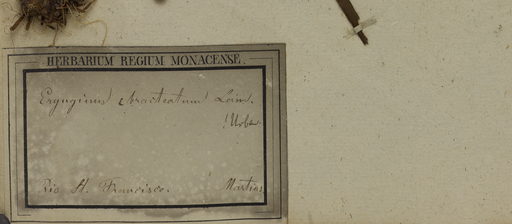 HERBARIUM REGIUM MONACENSE.
Eryngium bracteatum Lam.
! Urban.
Rio St. Francisco. Martius